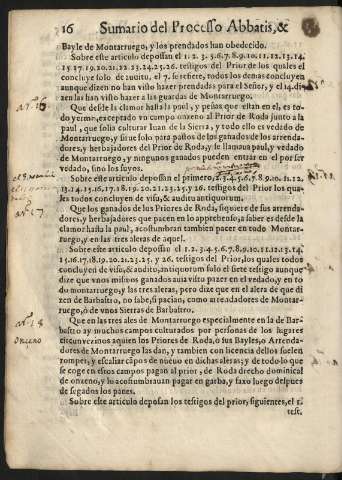 16 Sumario del Processo Abbatis, &
Bayle de Montarruego, y los prendados han obedecido.
Sobre este articulo depossan el 1. 2. 3. 5.6.7.8.9.10.11.12.13.14.
15.17.19.20.21.22.23.24.25.26. testigos del Prior de los quales el
concluye solo de auditu, el 7. se refiere, todos los demas concluyen
aunque dizen no han visto hazer prendadas para el Señor, y el 14. di-
zen las han visto hazer a las guardas de Montarruego.
Que desde la clamor hasta la paul, y peñas que estan en el, es to-
do yermo, exceptado vn campo onzeno al Prior de Roda junto a la
paul, que solia cultiuar Iuan de la Sierra, y todo ello es vedado de
Montarruego, y sirue solo para pastos de los ganados de los arrenda-
dores, y herbajadores del Prior de Roda, y se llama ua paul, y vedado
de Montarruego, y ningunos ganados pueden entrar en el por ser
vedado, sino los suyos.
Sobre este articulo depossan el primero, 2.3.4.5.6.7.8.9.10.11.12.
13.14.15.16.17.18.19.20.21.22.23.25.y 26. testigos del Prior los qua-
les todos concluyen de visu, & auditu antiquorum.
Que los ganados de los Priores de Roda, siquiere de sus arrenda-
dores, y herbajadores que pacen en lo apprehenso, a saber es desde la
clamor hasta la paul, acostumbran tambien pacer en todo Montar-
ruego, y en las tres aleras de aquel.
Sobre este articulo depossan el 1. 2. 3. 4. 5.6.7.8.9.10.11.12.13.14.
15.16.17.18.19.20.21.23.25. y 26. testigos del Prior, los quales todos
concluyen de visu, & auditu, antiquorum solo el siete testigo aunque
dize que vnos mismos ganados auia visto pazer en el vedado, y en to-
do montarruego, y las tres aleras, pero dize que en el alera de que di-
zen de Barbastro, no sabe, si pacian, como arrendadores de Montar-
ruego, ò de vnos Sierras de Barbastro.
Que en las tres ales de Montarruego especialmente en la de Bar-
bastro ay muchos campos cultiuados por personas de los lugares
circunvezinos aquien los Priores de Roda, ò sus Bayles, o Arrenda-
dores de Montarruego las dan, y tambien con licencia dellos suelen
romper, y escaliar cāpos de nueuo en dichas aleras; y de todo lo que
se coge en estos campos pagan al prior, de Roda drecho dominical
de onzeno, y lo acostumbrauan pagar en garba, y faxo luego despues
de segados los panes.
Sobre este articulo deposan los testigos del prior, siguientes, el 1.
test.
onzeno